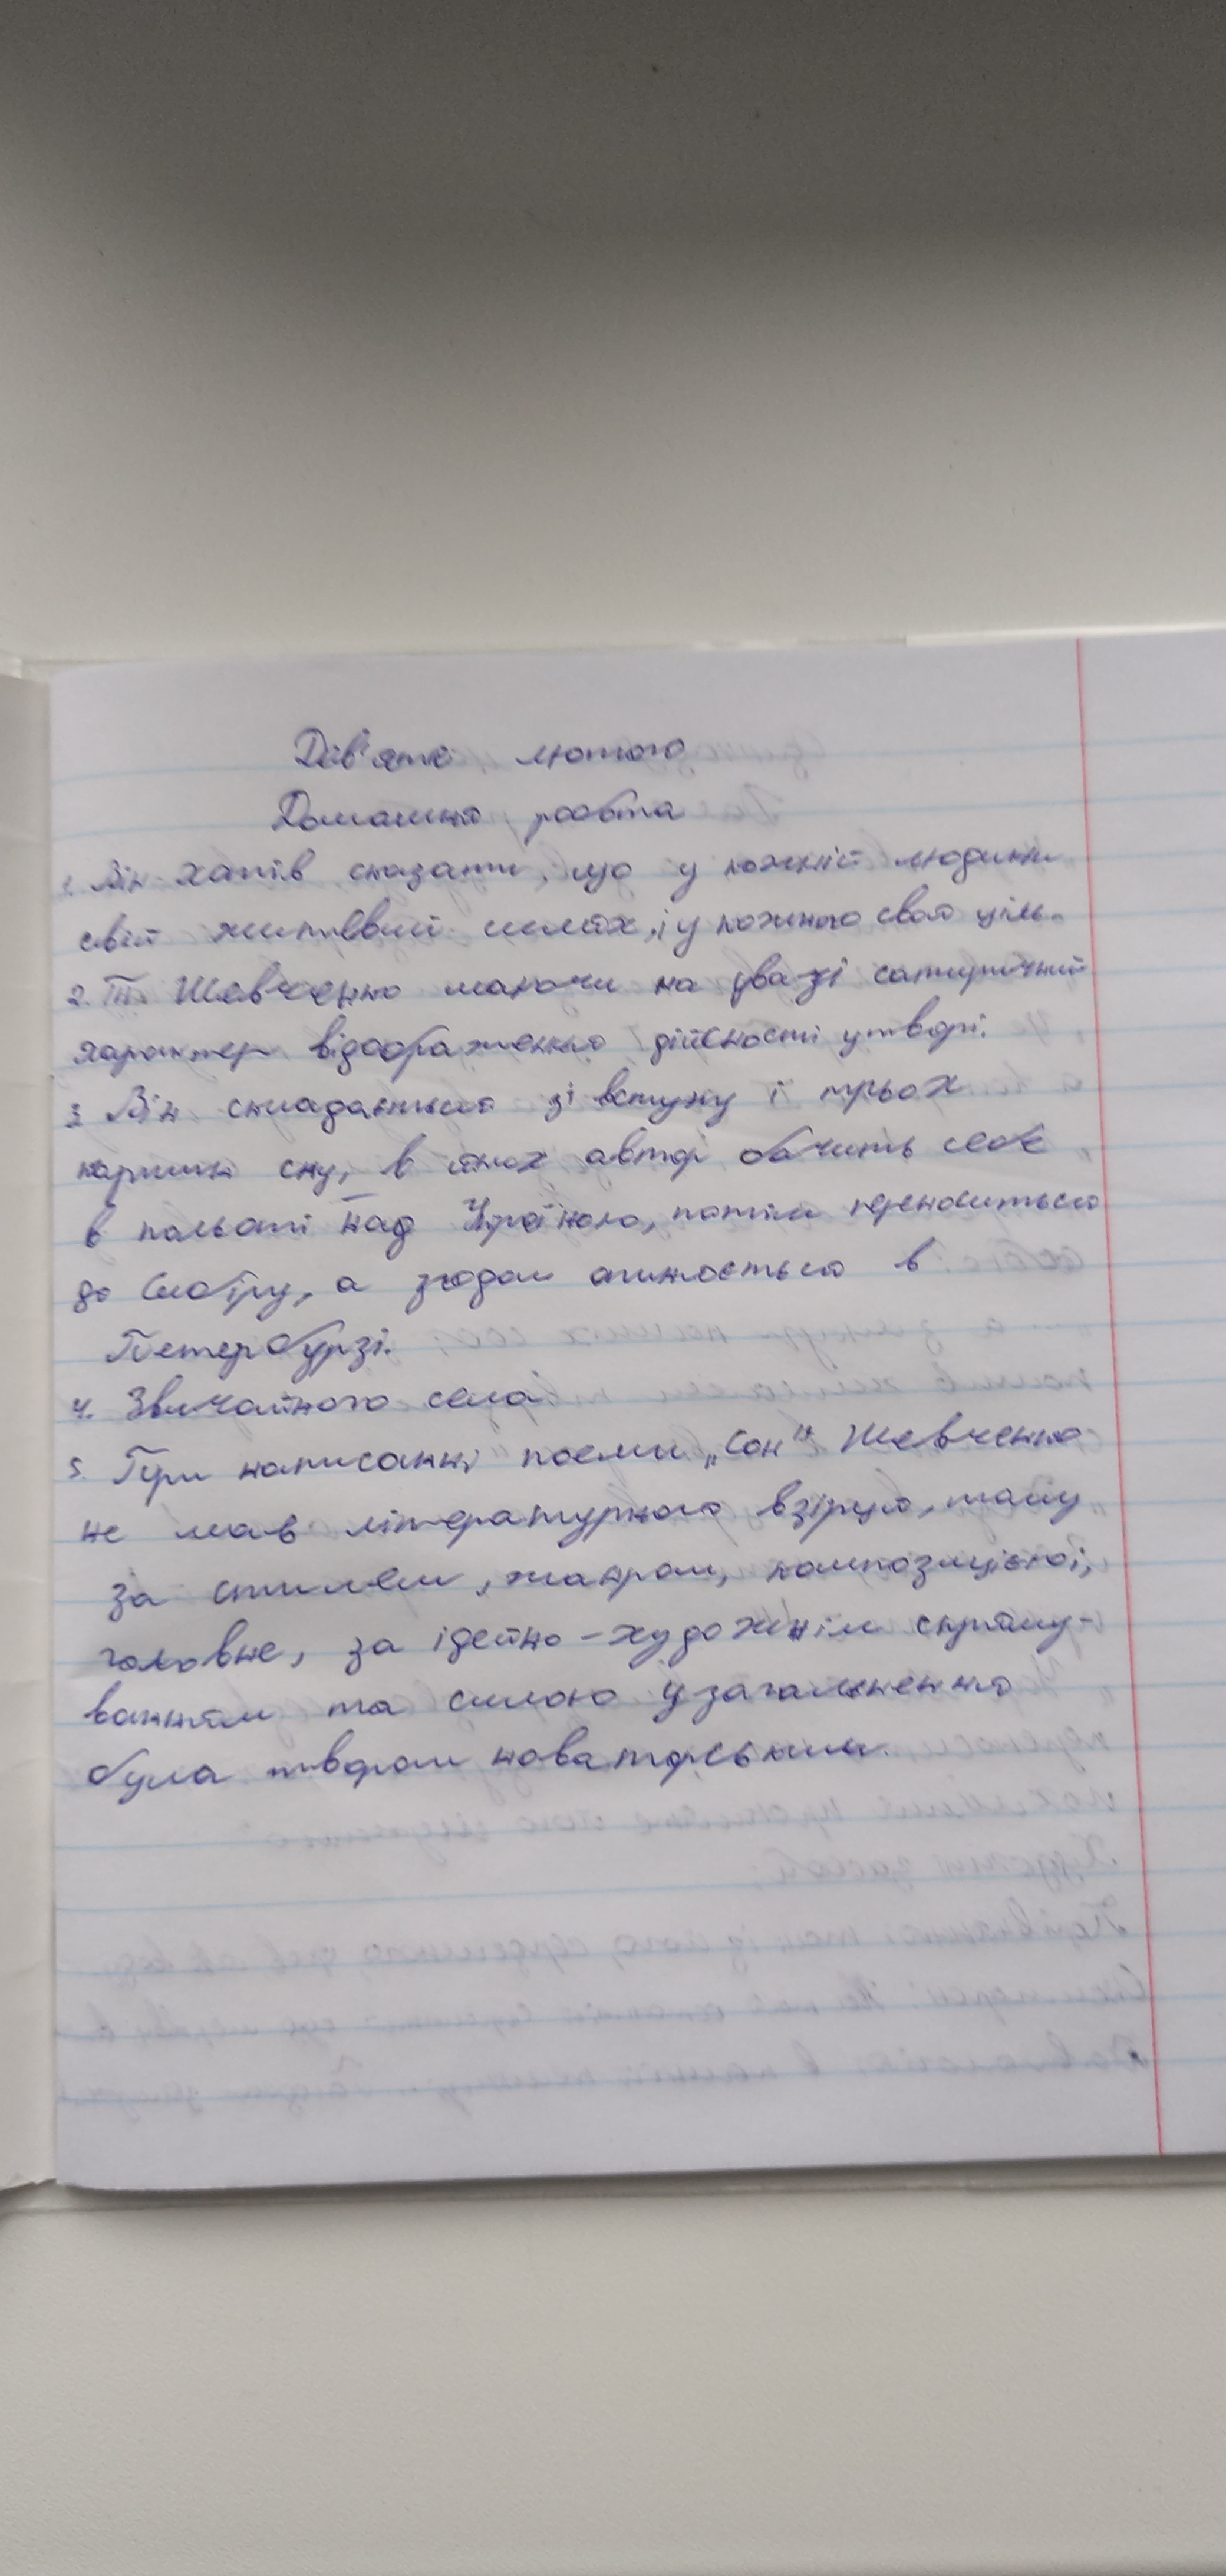 Дев'яте лютого
Домашня робота
1. Він хотів сказати, що у кожній людини
свій життєвий шлях, і у кожного своя ціль.
2. Т. Шевченко маючи на увазі сатиричний
характер відображення дійсності у творі.
3. Він складається зі вступу і трьох
картин сну, в яких автор бачить себе
в польоті над Україною, потім переноситься
до Сибіру, а згодом опиняється в
Петербурзі.
4. Звичайного села
5. При написанні поеми „Сон" Шевченко
не мав літературного взірця, тому
за стилем, жанром, композицією і,
головне, за ідейно-художнім спряму-
ванням та силою узагальнення
була твором новаторським.